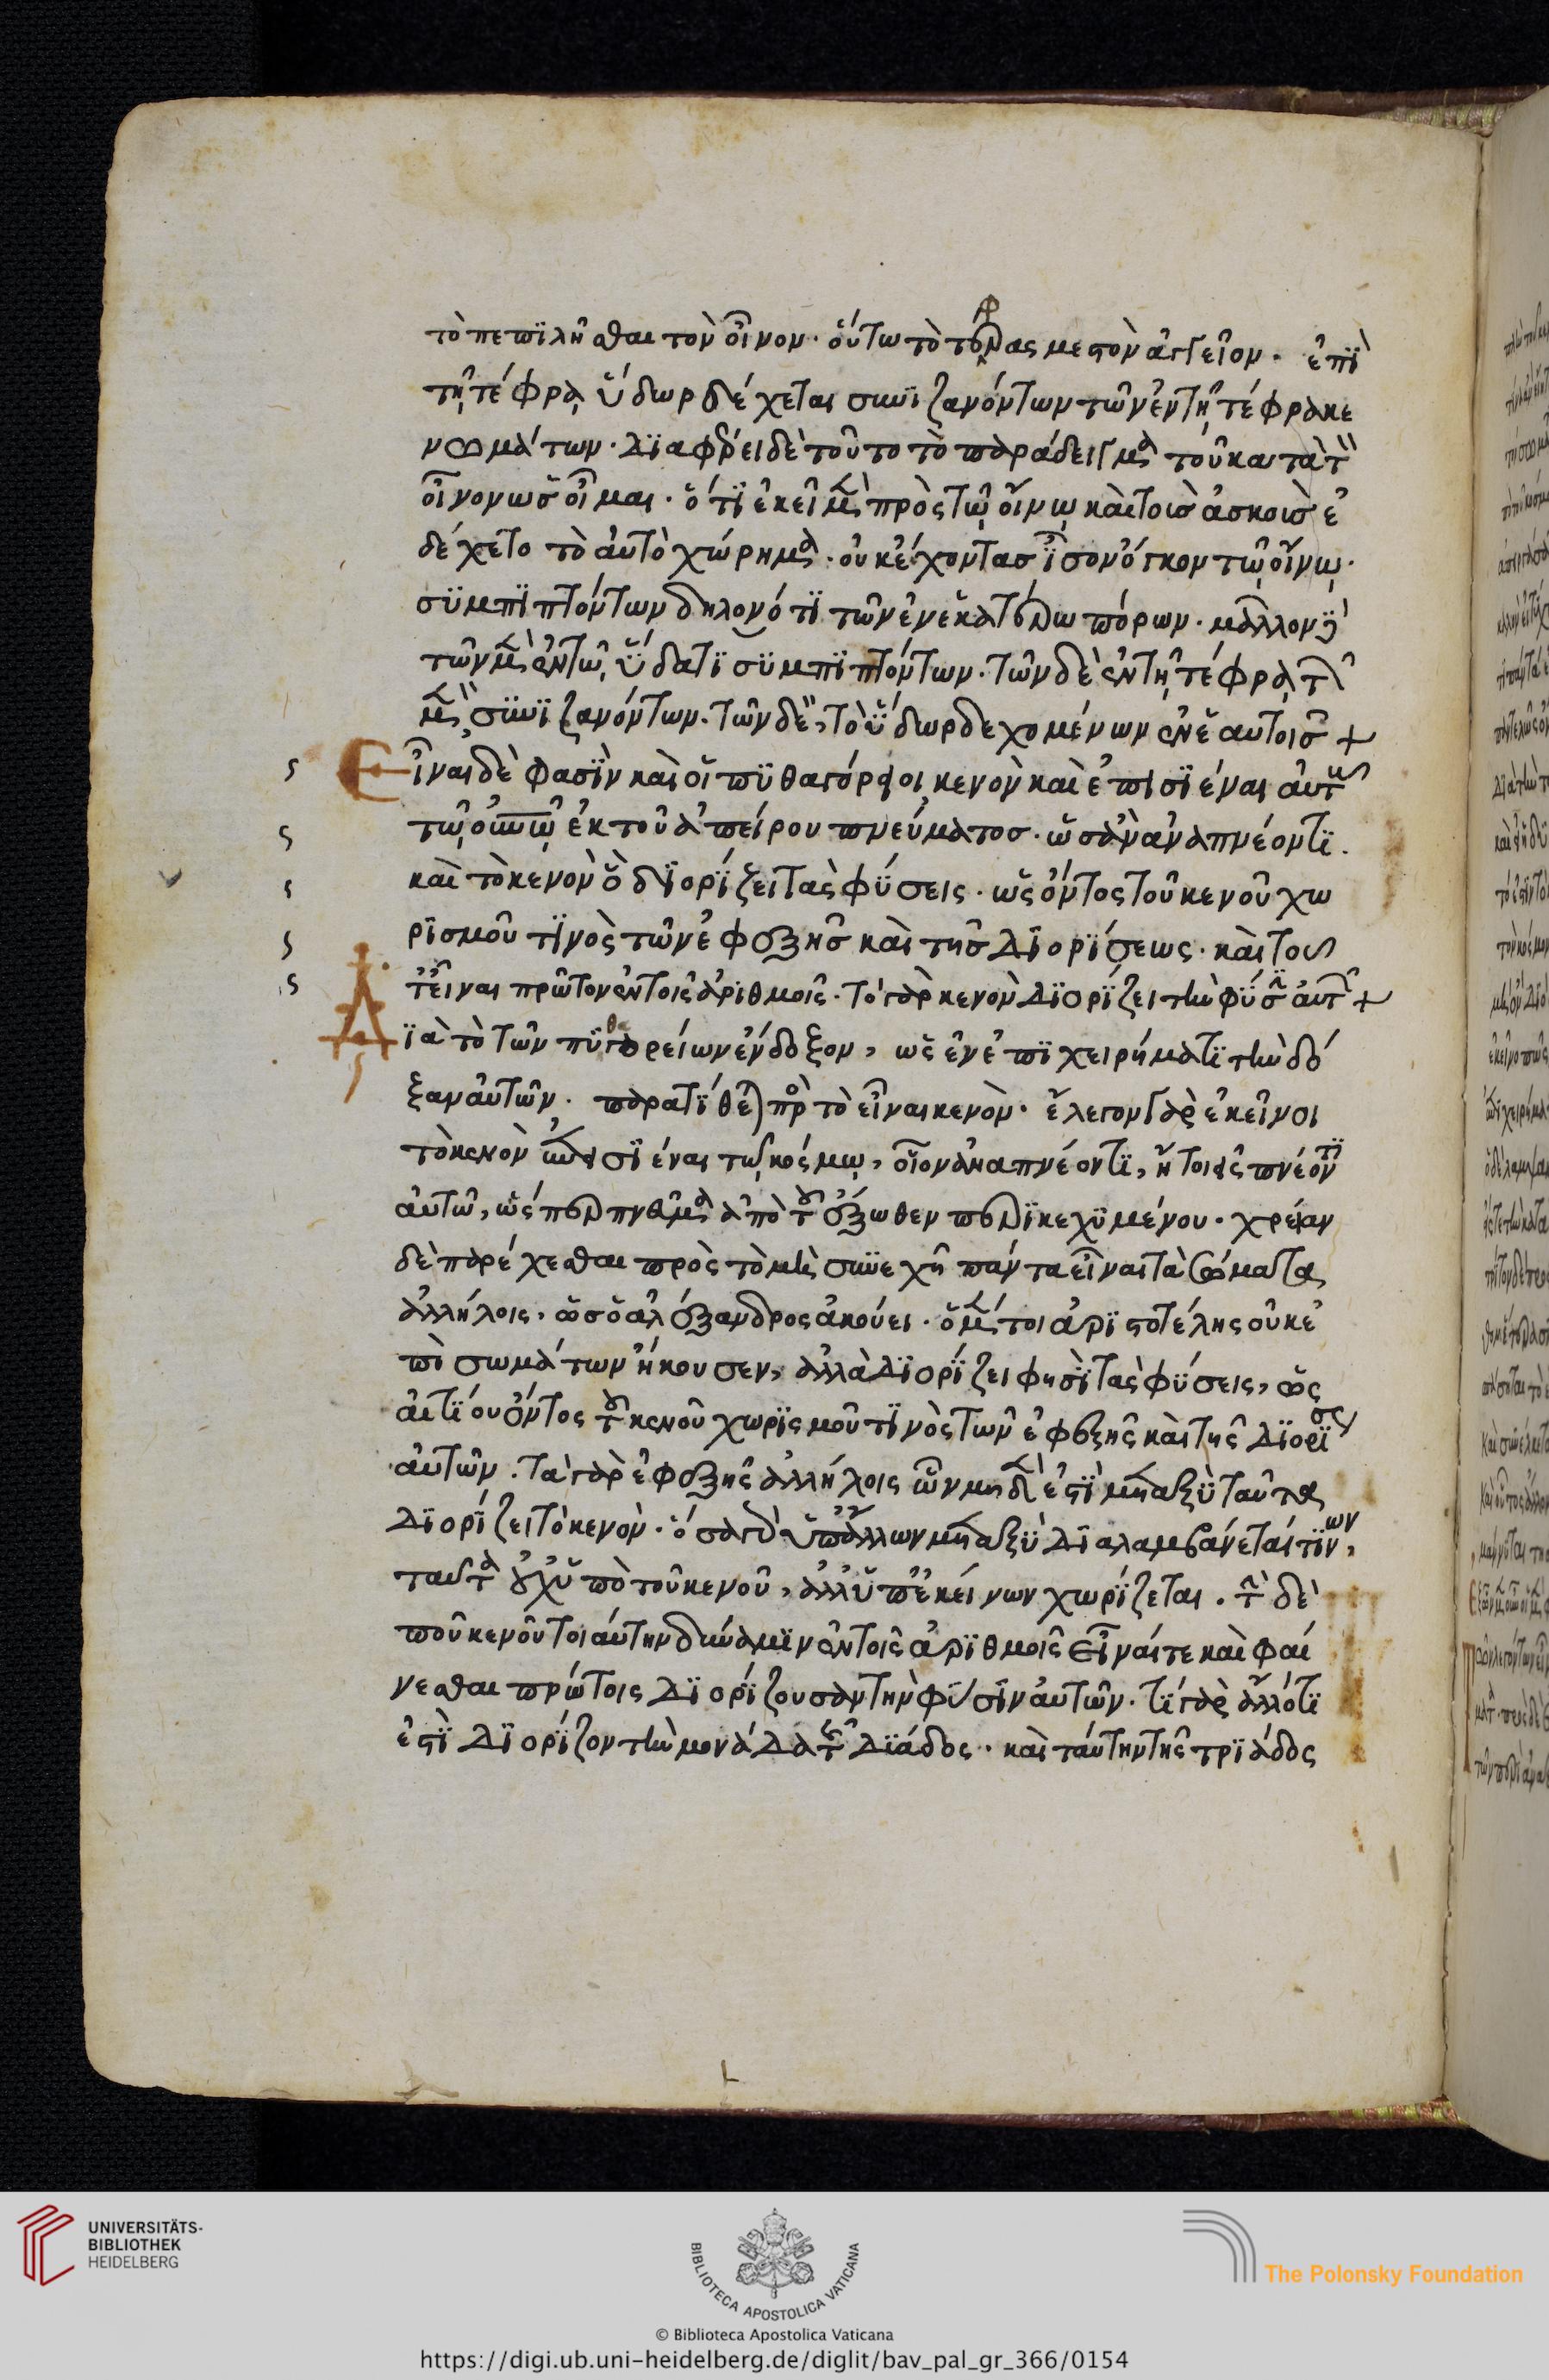 τὸ πεπϊλῆσθαι τὸν οἶνον. οὕτω τὸ τέφρας μεστὸν ἀγγεῖον. ἐπὶ
τῇ τέφρᾳ ὕδωρ δέχεται συνιζανόντων τῶν ἐν τῇ τέφρα κε
νωμάτων. διαφέρει δὲ τοῦτο τὸ παράδειγμα τοῦ κατὰ τὸν
οἶνον ὡς οἶμαι. ὅτι ἐκεῖ μὲν πρὸς τῷ οἴνῳ καὶ τοῖς ἀσκοῖς ἐ
δέχετο τὸ αὐτὸ χώρημα. οὐκ ἔχοντας ἴσον ὄγκον τῷ οἴνῳ.
συμπιπτόντων δηλονότι τῶν ἐν ἑκατέρω πόρων. μᾶλλον ἢ
τῶν μὲν ἐν τῷ ὕδατι συμπιπτόντων. τῶν δὲ ἐν τῇ τέφρᾳ τῶν
μὲν συνιζανόντων. τῶν δὲ, τὸ ὕδωρ δεχομένων ἐν ἑαυτοῖς +
Εἶναι δὲ φασὶν καὶ οἱ πυθαγόρειοι κενὸν καὶ ἐπεισϊέναι αὐτὸ
τῷ οὐνῷ ἐκ τοῦ ἀπείρου πνεύματος. ὡς ἂν ἀναπνέοντι.
καὶ τὸ κενὸν ὃ διορίζει τὰς φύσεις. ὡς ὄντος τοῦ κενοῦ χω
ρισμοῦ τινὸς τῶν ἐφεξῆς καὶ τῆς διορίσεως. καὶ τοῦ
τ' εἶναι πρῶτον ἐν τοῖς ἀριθμοῖς. τὸ γὰρ κενὸν διορίζει τὴν φύσιν αὐτῶν +
Διὰ τὸ τῶν πυθαγορείων ἔνδοξον, ὡς ἐν ἐπιχειρήματι τὴν δό
ξαν αὐτῶν. παρατίθεται πρὸς τὸ εἶναι κενὸν. ἔλεγον γὰρ ἐκεῖνοι
τὸ κενὸν ἐπεισϊέναι τῷ κόσμῳ, οἷον ἀναπνέοντι, ἤτοι εἰσπνέοντι
αὐτῷ, ὥσπερ πνεῦμα ἀπὸ τοῦ ἔξωθεν περικεχυμένου. χρείαν
δὲ παρέχεσθαι πρὸς τὸ μὴ συνεχῆ πάντα εἶναι τὰ σώματα
ἀλλήλοις, ὡς ὁ ἀλέξανδρος ἀκούει. ὁ μέντοι ἀριστοτέλης οὐκ ἐ
πὶ σωμάτων ἤκουσεν, ἀλλὰ διορίζει φησὶ τὰς φύσεις, ὡς
αἰτίου ὄντος τοῦ κενοῦ χωρισμοῦ τινὸς τῶν ἐφεξῆς καὶ τῆς διορίσεως
αὐτῶν. τὰ γὰρ ἐφεξῆς ἀλλήλοις ὧν μηδέν ἐστι μεταξὺ ταῦτα
διορίζει τὸ κενὸν. ὅσα γὰρ ὑπ' ἄλλων μεταξὺ διαλαμβάνεταί τινων,
ταῦτα οὐχ ὑπὸ τοῦ κενοῦ, ἀλλ' ὑπ' ἐκείνων χωρίζεται. τὴν δὲ
που κενοῦ τοιαύτην δύναμιν ἐν τοῖς ἀριθμοῖς εἶναί τε καὶ φαί
νεσθαι πρώτοις διορίζουσαν τὴν φύσιν αὐτῶν. τί γὰρ ἄλλό τι
ἐστὶ διορίζον τὴν μονάδα τῆς δυάδος. καὶ ταύτην τῆς τριάδος
UNIVERSITÄTS-
BIBLIOTHEK
HEIDELBERG
BIBLIOTECA APOSTOLICA VATICANA
© Biblioteca Apostolica Vaticana
The Polonsky Foundation
https://digi.ub.uni-heidelberg.de/diglit/bav_pal_gr_366/0154